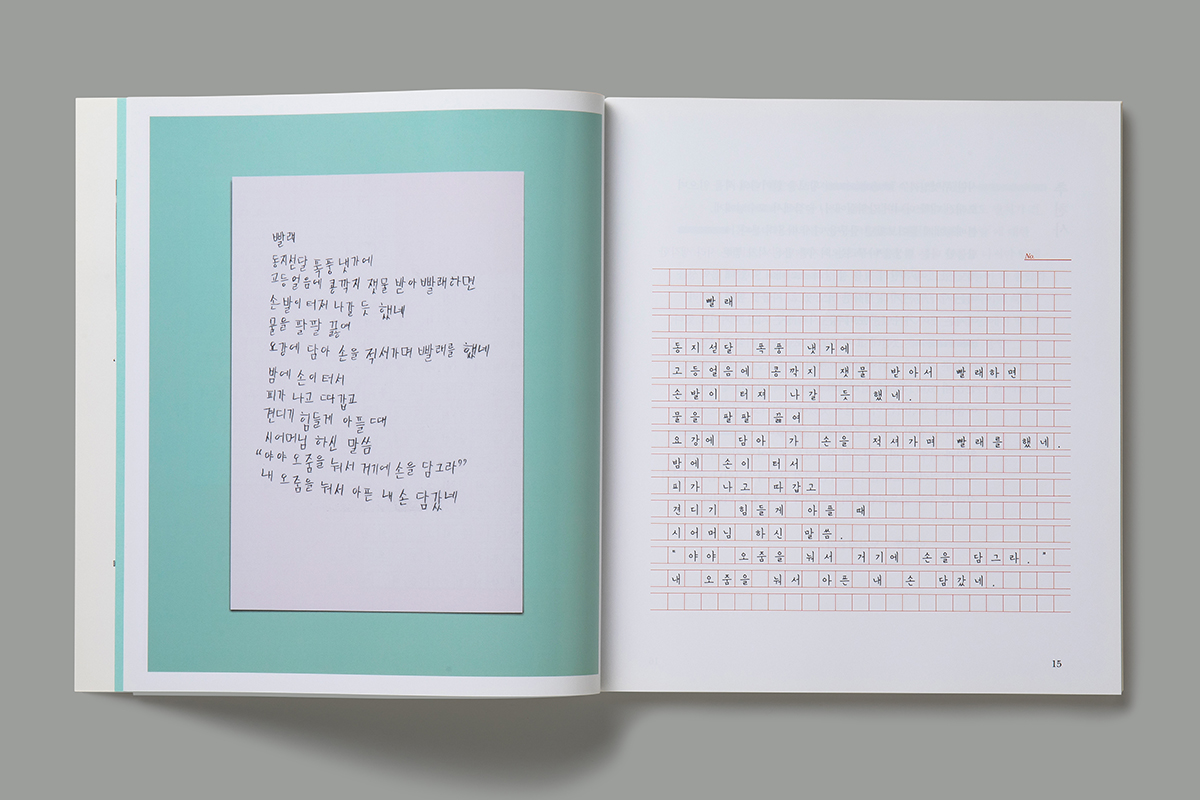 빨래
동지섣달 폭풍 냇가에
고등얼음에 콩깍지 잿물 받아 빨래하면
손발이 터저 나갈 듯 했네
물을 팔팔 끓여
요강에 담아 손을 적셔가며 빨래를 했네
밤에 손이 터서
피가 나고 따갑고
견디기 힘들게 아플 때
시어머님 하신 말씀
“야야 오줌을 눠서 거기에 손을 담그라”
내 오줌을 눠서 아픈 내 손 담갔네
No
빨래
동지섣달 폭풍 냇가에
고등얼음에 콩깍지 잿물 받아서 빨래하면
손발이 터져 나갈 듯 했네.
물을 팔팔 끓여
요강에 담아 가 손을 적셔가며 빨래를 했네.
밤에 손이 터서
피가 나고 따갑고
견디기 힘들게 아플 때
시어머님 하신 말씀.
"야야 오줌을 눠서 거기에 손을 담그라."
내 오줌을 눠서 아픈 내 손 담갔네.
15